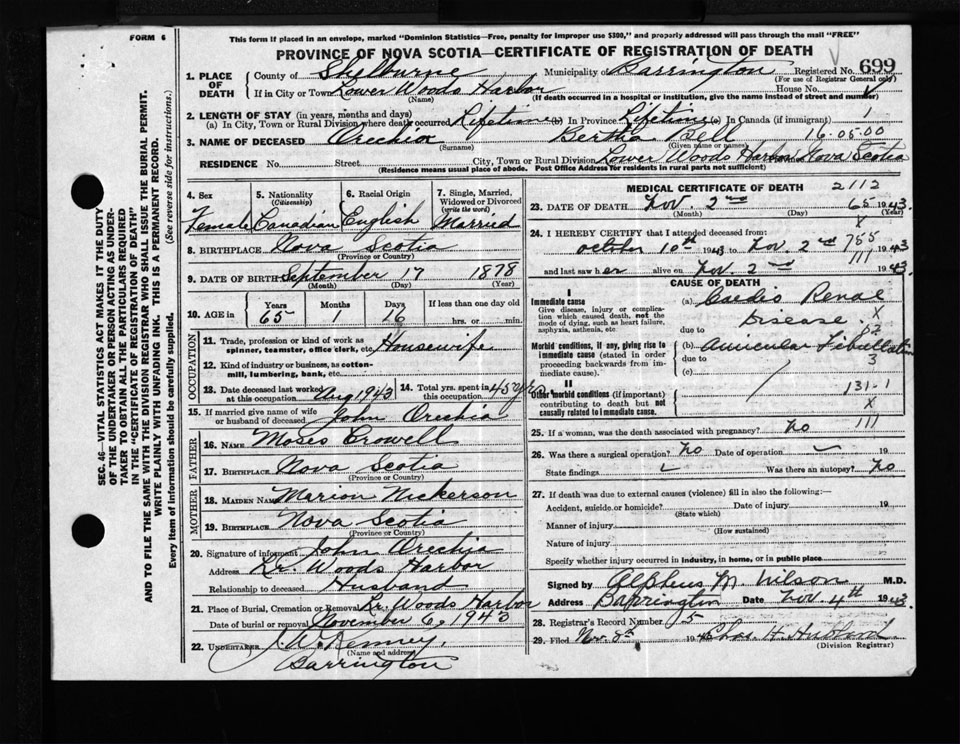 FORM 6
This form if placed in an envelope, marked "Dominion Statistics—Free, penalty for improper use $300," and properly addressed will pass through the mail "FREE"
PROVINCE OF NOVA SCOTIA—CERTIFICATE OF REGISTRATION OF DEATH
1. PLACE OF DEATH County of Shelburne Municipality of Barrington Registered No. 699
(For use of Registrar General only)
If in City or Town Lower Woods Harbor House No.
(Name) (If death occurred in a hospital or institution, give the name instead of street and number)
2. LENGTH OF STAY (in years, months and days)
(a) In City, Town or Rural Division where death occurred Lifetime (b) In Province Lifetime (c) In Canada (if immigrant) 1
3. NAME OF DECEASED Orechia Bertha Bell 16-05-00
(Surname) (Given name or names)
RESIDENCE No. Street City, Town or Rural Division Lower Woods Harbor Nova Scotia
(Residence means usual place of abode. Post Office Address for residents in rural parts not sufficient)
4. Sex Female
5. Nationality (Citizenship) Canadian
6. Racial Origin English
7. Single, Married, Widowed or Divorced (write the word) Married
8. BIRTHPLACE Nova Scotia
(Province or Country)
9. DATE OF BIRTH September 17 1878
(Month) (Day) (Year)
10. AGE in Years Months Days If less than one day
65 1 16 hrs. or min.
OCCUPATION
11. Trade, profession or kind of work as spinner, teamster, office clerk, etc. Housewife
12. Kind of industry or business, as cotton-mill, lumbering, bank, etc.
13. Date deceased last worked at this occupation Aug 1943
14. Total yrs. spent in this occupation 45 yrs
15. If married give name of wife or husband of deceased John Orechia
FATHER
16. NAME Moses Crowell
17. BIRTHPLACE Nova Scotia
(Province or Country)
MOTHER
18. MAIDEN NAME Marion Nickerson
19. BIRTHPLACE Nova Scotia
(Province or Country)
20. Signature of informant John Orechia
Address Lr. Woods Harbor
Relationship to deceased Husband
21. Place of Burial, Cremation or Removal Lr. Woods Harbor
Date of burial or removal November 6, 1943
22. UNDERTAKER Kenney,
(Name and address)
Barrington
MEDICAL CERTIFICATE OF DEATH 2112
23. DATE OF DEATH Nov. 2nd 65 1943
(Month) (Day) (Year)
24. I HEREBY CERTIFY that I attended deceased from: X
October 10th 1943 to Nov. 2nd 755 1943
and last saw her alive on Nov. 2nd 111 1943
CAUSE OF DEATH
I
Immediate cause
Give disease, injury or complication which caused death, not the mode of dying, such as heart failure, asphyxia, asthenia, etc
(a) Cardio Renal
Disease X
due to
Morbid conditions, if any, giving rise to immediate cause (stated in order proceeding backwards from immediate cause).
(b) Auricular Fibrillation
due to 3
(c)
II
Other morbid conditions (if important) contributing to death but not causally related to immediate cause.
131-1
X
111
25. If a woman, was the death associated with pregnancy? No
26. Was there a surgical operation? No Date of operation 19
State findings Was there an autopsy? No
27. If death was due to external causes (violence) fill in also the following:—
Accident, suicide or homicide? Date of injury 19
(State which)
Manner of injury
(How sustained)
Nature of injury
Specify whether injury occurred in industry, in home, or in public place
Signed by Alpheus M. Wilson M.D.
Address Barrington Date Nov. 4th 1943
28. Registrar's Record Number 75
29. Filed Nov. 8th 194 Chas. H. Hubbard
(Division Registrar)
SEC. 46—VITAL STATISTICS ACT MAKES IT THE DUTY
OF THE UNDERTAKER OR PERSON ACTING AS UNDER-
TAKER TO OBTAIN ALL THE PARTICULARS REQUIRED
IN THE "CERTIFICATE OF REGISTRATION OF DEATH"
AND TO FILE THE SAME WITH THE DIVISION REGISTRAR WHO SHALL ISSUE THE BURIAL PERMIT.
WRITE PLAINLY WITH UNFADING INK. THIS IS A PERMANENT RECORD.
Every item of Information should be carefully supplied. (See reverse side for instructions.)